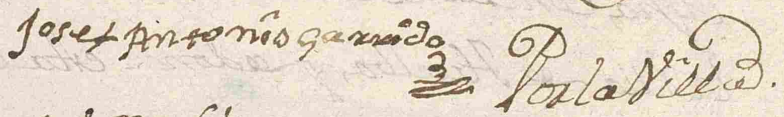 Josef Antonio Garrido
Por la Villa.